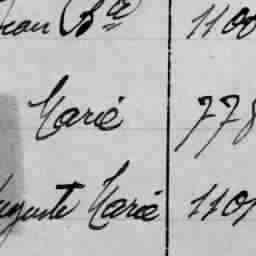 Jean Bte 1100
Marie 778
Auguste Marie 1101